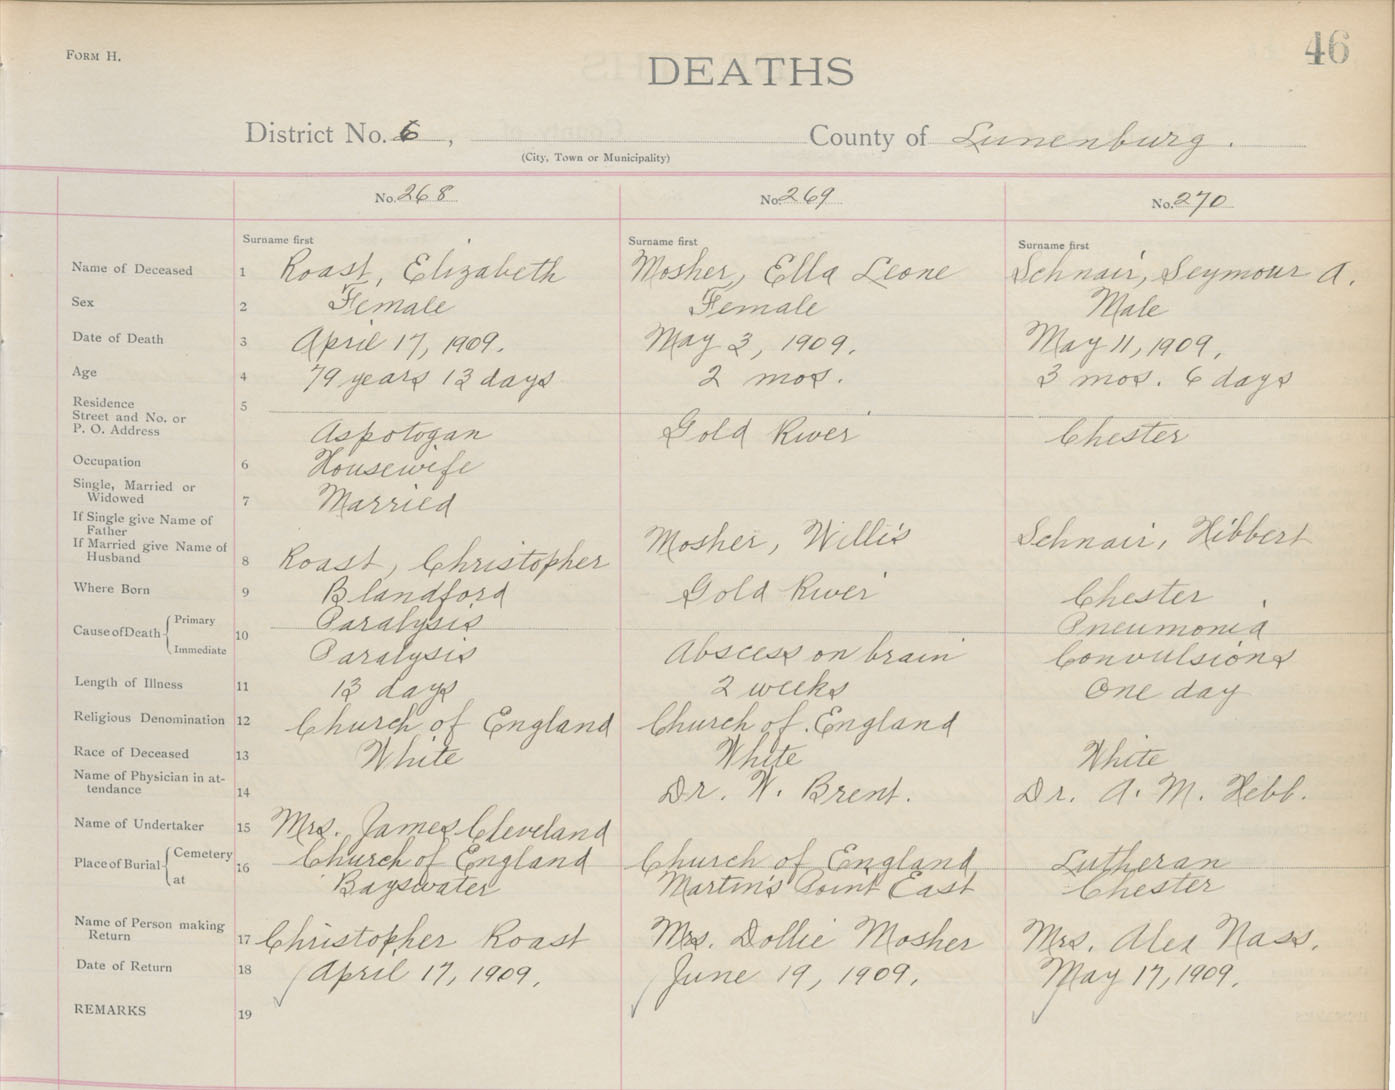 46
FORM H.
DEATHS
District No. 6, County of Lunenburg.
(City, Town or Municipality)
No. 268 No. 269 No. 270
Surname first Surname first Surname first
Name of Deceased 1 Roast, Elizabeth Mosher, Ella Leone Schnair, Seymour A.
Sex 2 Female Female Male
Date of Death 3 April 17, 1909. May 3, 1909. May 11, 1909.
Age 4 79 years 13 days 2 mos. 3 mos. 6 days
Residence 5
Street and No. or
P. O. Address Aspotogan Gold River Chester
Occupation 6 Housewife
Single, Married or
Widowed 7 Married
If Single give Name of
Father Mosher, Willis Schnair, Hibbert
If Married give Name of
Husband 8 Roast, Christopher
Where Born 9 Blandford Gold River Chester
Cause of Death Primary 10 Paralysis Pneumonia
Immediate Paralysis Abscess on brain Convulsions
Length of Illness 11 13 days 2 weeks One day
Religious Denomination 12 Church of England Church of England
Race of Deceased 13 White White White
Name of Physician in at-
tendance 14 Dr. W. Brent. Dr. A. M. Hebb.
Name of Undertaker 15 Mrs. James Cleveland
Place of Burial Cemetery 16 Church of England Church of England Lutheran
at Bayswater Martin's Point East Chester
Name of Person making
Return 17 Christopher Roast Mrs. Dollie Mosher Mrs. Alex Nass.
Date of Return 18 April 17, 1909. June 19, 1909. May 17, 1909.
REMARKS 19